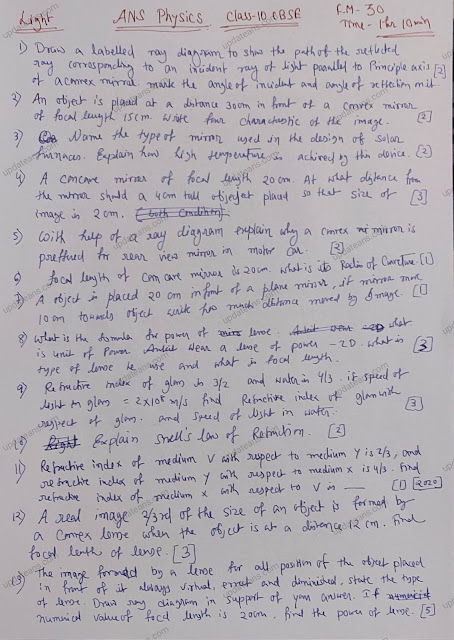 Light ANS Physics Class-10 CBSE F.M- 30
Time - 1hr 10 min
1) Draw a labelled ray diagram to show the path of the reflected
ray corresponding to an incident ray of light parallel to Principle axis
of a convex mirror. mark the angle of incident and angle of reflection in it. [2]
2) An object is placed at a distance 30cm in front of a convex mirror
of focal length 15cm. write four characteristic of the image. [2]
3) Name the type of mirror used in the design of solar
furnaces. Explain how high temperature is achieved by this device. [2]
4) A concave mirror of focal length 20cm. At what distance from
the mirror should a 4cm tall object placed so that size of [3]
image is 2cm. (both condition)
5) With help of a ray diagram explain why a convex mirror is
preffered for rear view mirror in motor car. [2]
6) focal length of concave mirror is 20cm. what is its Radius of Curvature. [1]
7) A object is placed 20 cm in front of a plane mirror, if mirror move
10 cm towards object write how much distance moved by image. [1]
8) What is the formula for power of lense. what
is unit of Power. wear a lense of power -2D. what is
type of lense he use and what is focal length. [3]
9) Refractive index of glass is 3/2 and water is 4/3. if speed of
light in glass = 2×10⁸ m/s find Refractive index of glass with
respect of glass. and speed of light in water. [3]
10) Explain snell's law of Refraction. [2]
11) Refractive index of medium V with respect to medium Y is 2/3, and
refractive index of medium Y with respect to medium x is 4/3. find
refractive index of medium x with respect to V is ___ [1] [2020]
12) A real image 2/3rd of the size of an object is formed by
a Convex lense when the object is at a distance 12 cm. Find
focal lenth of lense. [3]
13) The image formed by a lense for all position of the object placed
in front of it always virtual, erect and diminished, state the type
of lense. Draw ray diagram in support of your answer. If
numerical value of focal length is 20cm, find the power of lense. [5]
updateans.com